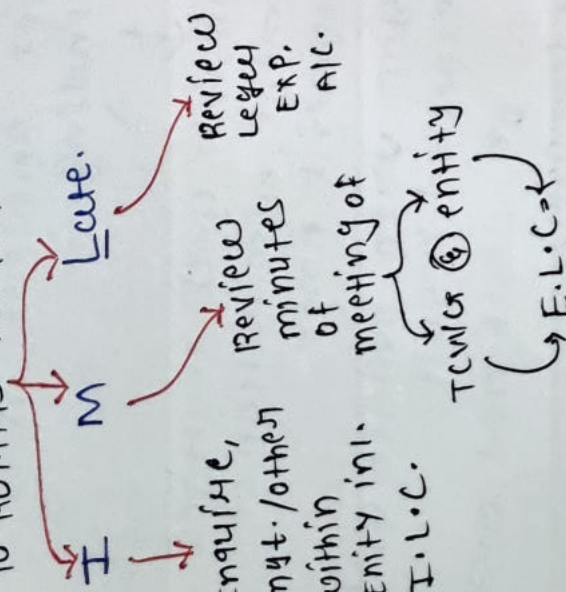 I
M
Late.
Enquire,
mgt./other
within
Enity ini.
I.L.C.
Review
minutes
of
meeting of
TCWG & entity
E.L.C
Review
Legal
Exp.
A/C.